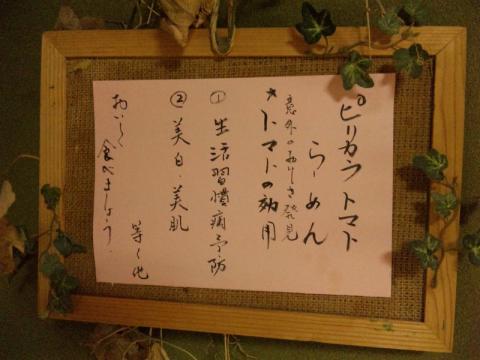 ピリカラトマト
らーめん
意外の美味しさ発見
★トマトの効用
①生活習慣病予防
②美白・美肌
等々他
おいしく
食べましょう。